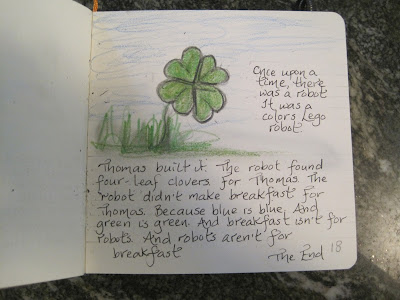 Once upon a
time, there
was a robot
It was a
colors Lego
robot
Thomas built it. The robot found
four-leaf clovers for Thomas. The
robot didn't make breakfast for
Thomas. Because blue is blue. And
green is green. And breakfast isn't for
robots. And robots aren't for
breakfast
The End 18